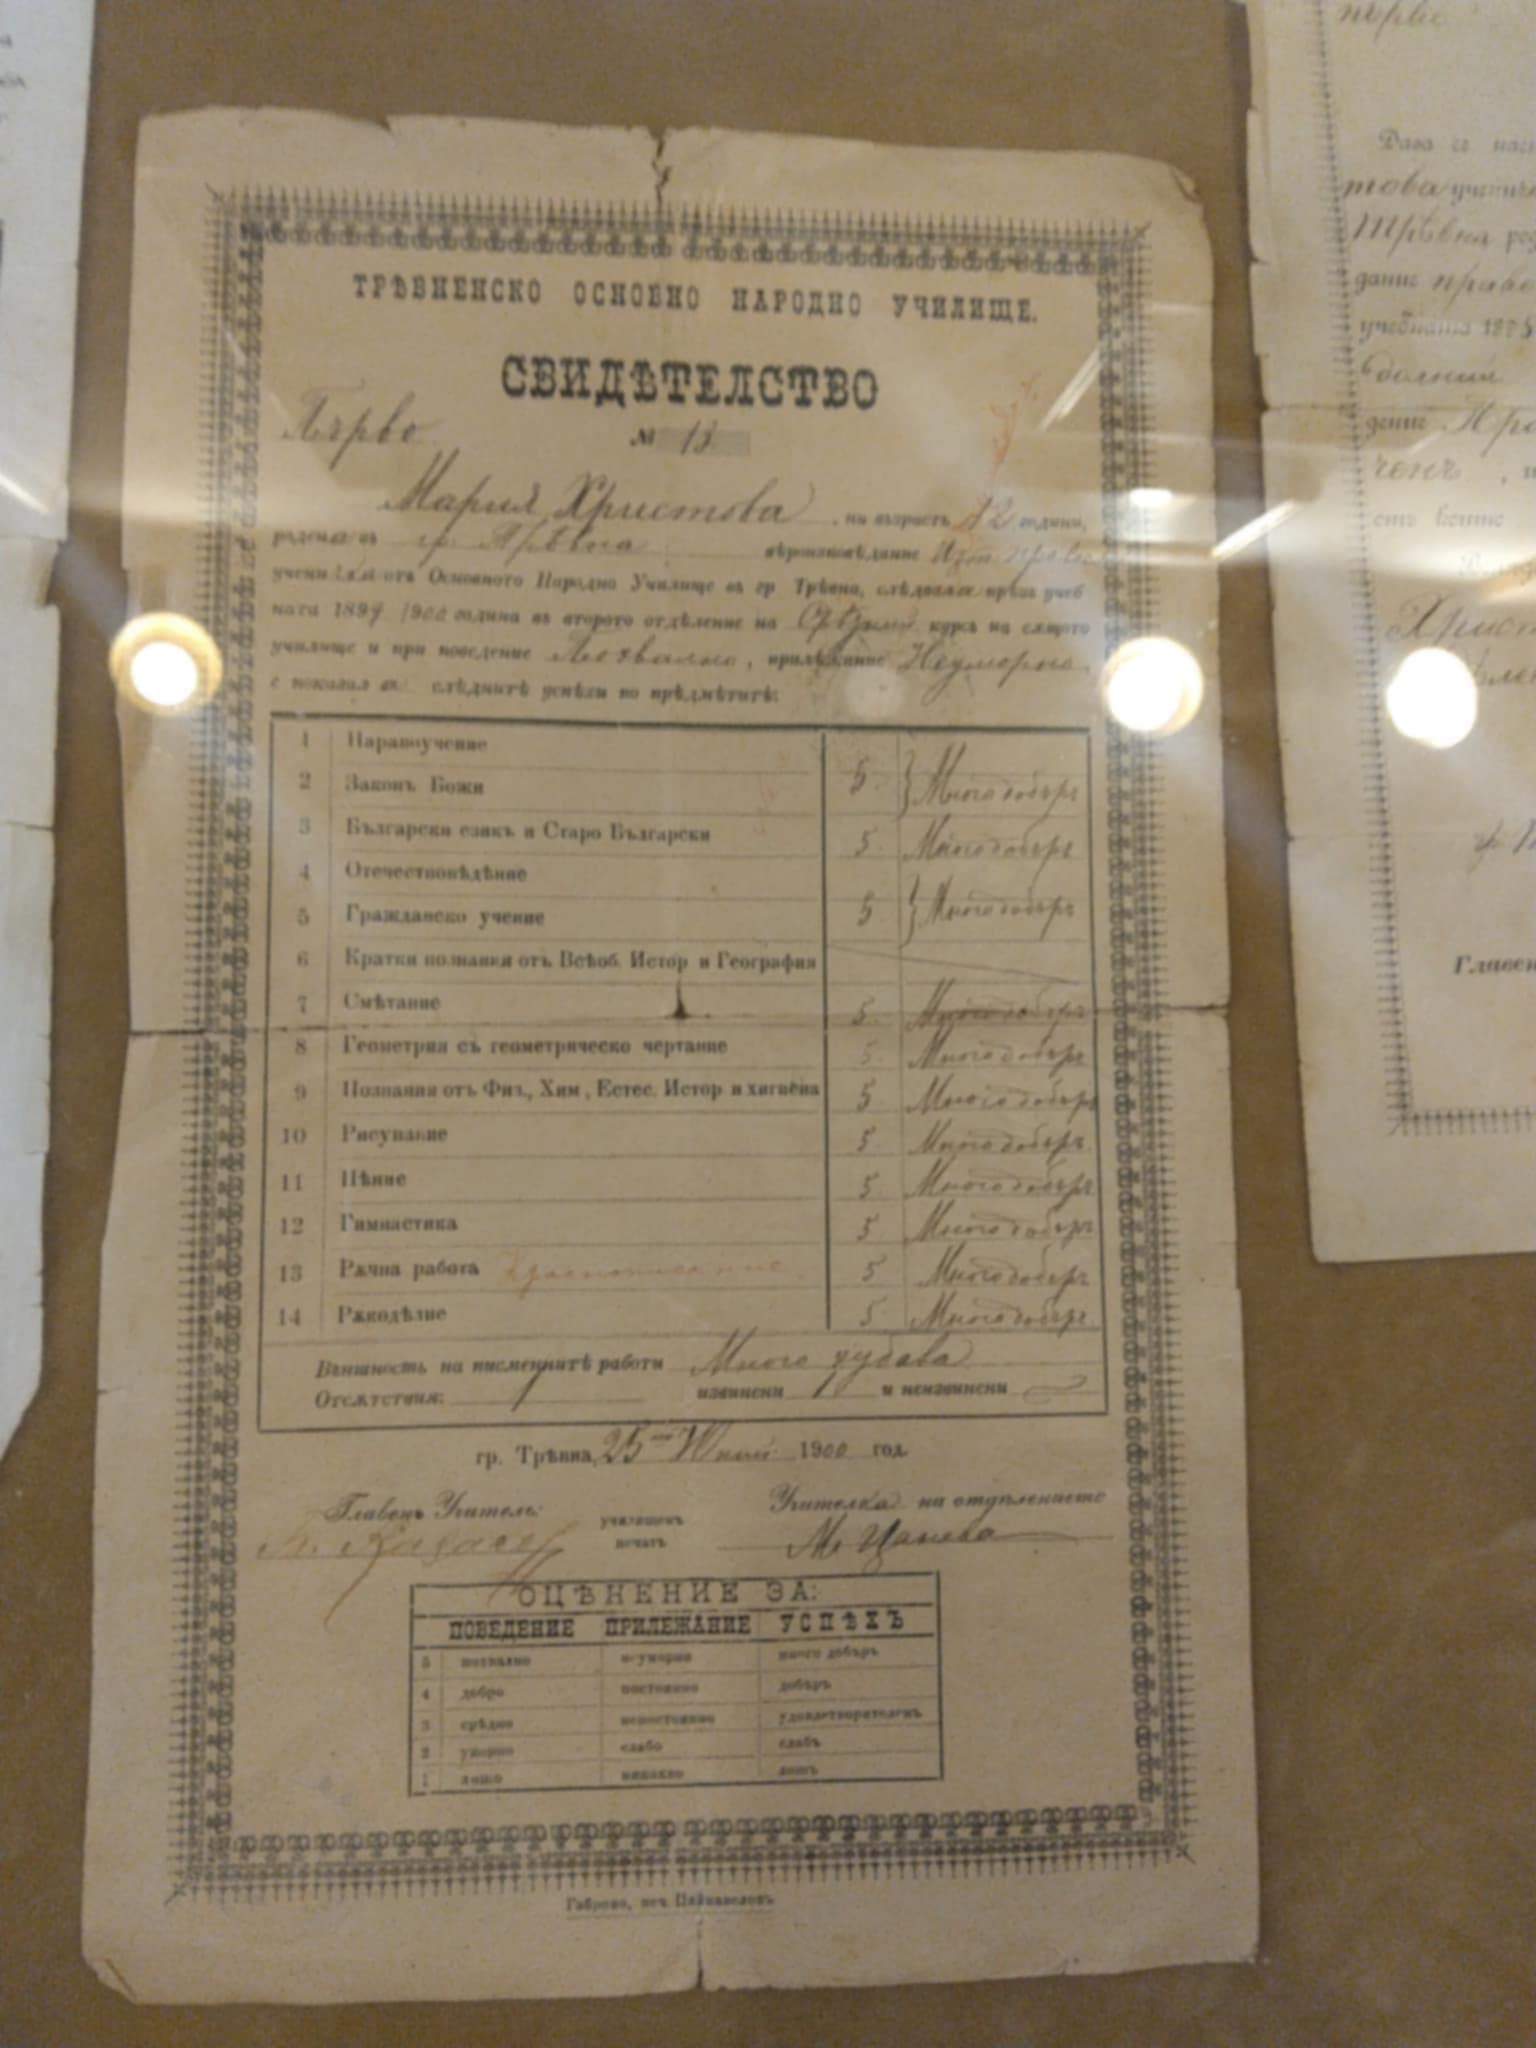 ТРѢВНЕНСКО ОСНОВНО НАРОДНО УЧИЛИЩЕ.
СВИДѢТЕЛСТВО
Първо № 13
Мария Христова, на възрасть 12 години,
родена въ гр. Трѣвна вѣроизповѣдание
отъ Основното Народно Училище въ гр Трѣвна, слѣдвала прѣзъ учеб
ната 1899/1900 година въ второто отдѣление на курсъ на сѫщото
училище и при поведение Похвално, прилѣжание Неуморно
е показал а слѣднитѣ успѣхи по прѣдмѣтитѣ:
1 Нравоучение
2 Законъ Божи 5 } Много добъръ
3 Български езикъ и Старо Български 5 Много добъръ
4 Отечествовѣдѣние
5 Гражданско учение 5 } Много добъръ
6 Кратки познания отъ Всѣоб. Истор и География
7 Смѣтание 5 Много добъръ
8 Геометрия съ геометрическо чертание 5 Много добъръ
9 Познания отъ Физ., Хим, Естес. Истор и хигиена 5 Много добъръ
10 Рисувание 5 Много добъръ
11 Пѣние 5 Много добъръ
12 Гимнастика 5 Много добъръ
13 Рѫчна работа Краснописание 5 Много добъръ
14 Рѫкодѣлие 5 Много добъръ
Вѫншность на писменнитѣ работи Много хубава
Отсѫтствия: 1 извинени 1 и неизвинени
гр. Трѣвна, 25 Юний 1900 год.
Главенъ Учитель: училищенъ печатъ Учителка на отдѣлението
М. Цанева
ОЦѢНЕНИЕ ЗА:
ПОВЕДЕНИЕ ПРИЛЕЖАНИЕ УСПѢХЪ
5 похвално неуморно много добъръ
4 добро постоянно добъръ
3 срѣдно непостоянно удовлетворителенъ
2 укорно слабо слабъ
1 лошо никакво лошъ
Габрово, печ
първо
Дава се
това
Трѣвна
дание право
учебната
дение
Главен